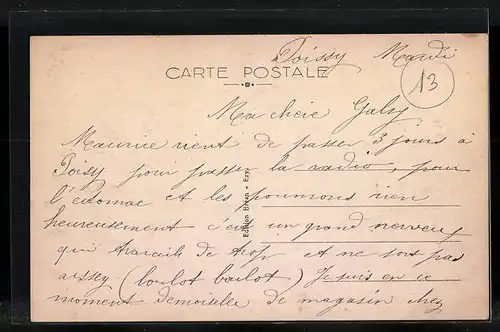 Poissy Mardi
13
CARTE POSTALE
Ma chère Gaby
Maurice vient de passer 3 jours à
Poissy pour passer la radio, pour
l'estomac et les poumons rien
heureusement c'est un grand nerveux
qui travaille de trop et ne sort pas
assez (boulot boulot) Je suis en ce
moment demoiselle de magasin chez
Edition - Ezy